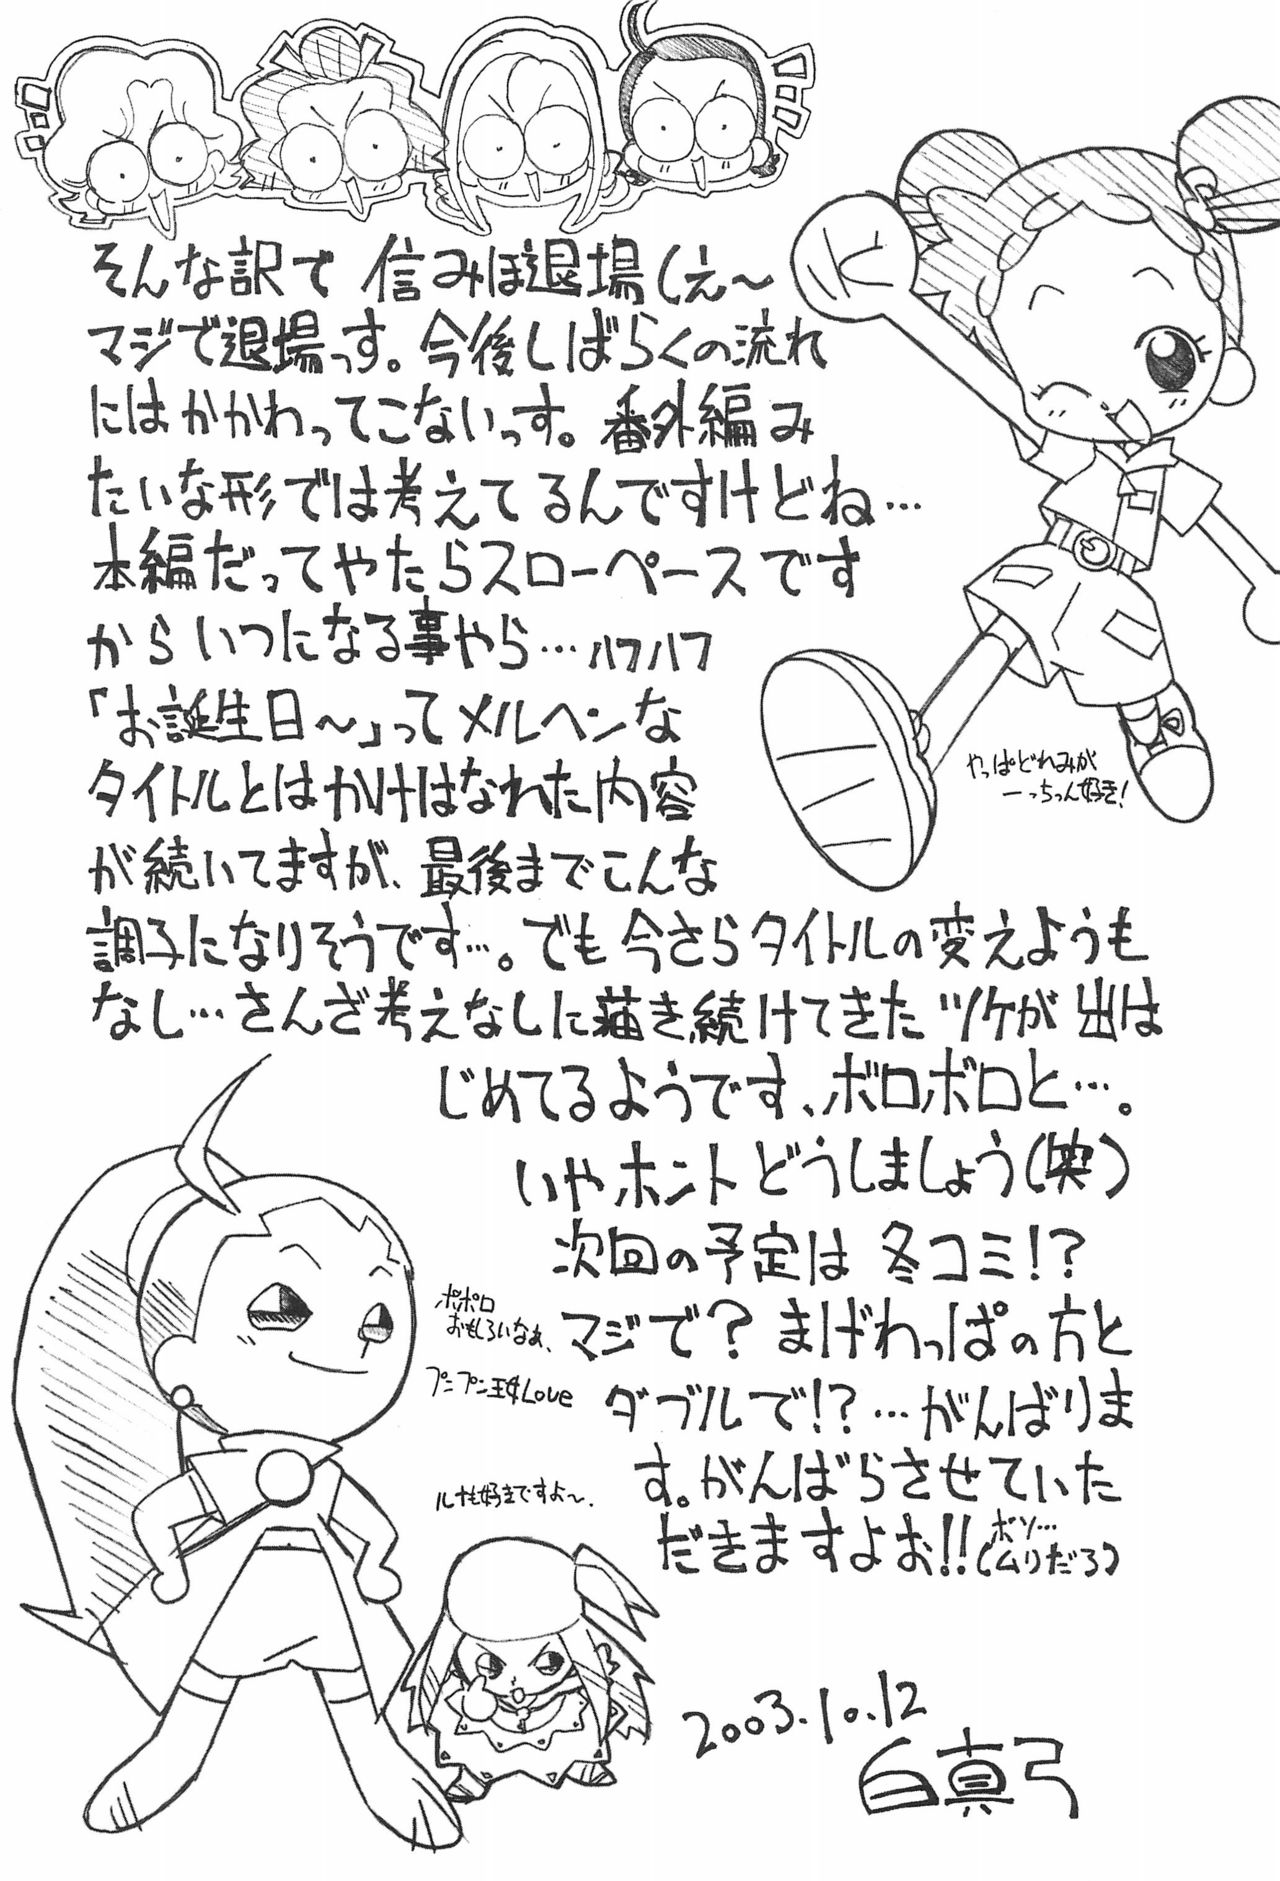 そんな訳で 信みほ退場(え〜
マジで退場っす。今後しばらくの流れ
にはかかわってこないっす。番外編み
たいな形では考えてるんですけどね…
本編だってやたらスローペースです
からいつになる事やら…ハフハフ
「お誕生日〜」ってメルヘンな
タイトルとはかけはなれた内容
が続いてますが、最後までこんな
調子になりそうです…。でも今さらタイトルの変えようも
なし…さんざ考えなしに描き続けてきたツケが出は
じめてるようです、ボロボロと…。
いやホントどうしましょう(笑)
次回の予定は 冬コミ!?
マジで?まげわっぱの方と
ダブルで!?…がんばりま
す。がんばらさせていた
だきますよぉ!!(ボソ…
ムリだろ)
やっぱどれみが
一っちゃん好き!
ポポロ
おもしろいなぁ、
プニプン王女Love
ルナも好きですよ〜、
2003.10.12
白真弓